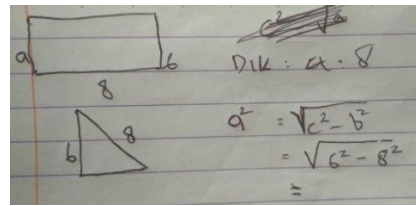 a
6
8
6
8
DIK : a . 8
a² = √c² - b²
= √6² - 8²
=